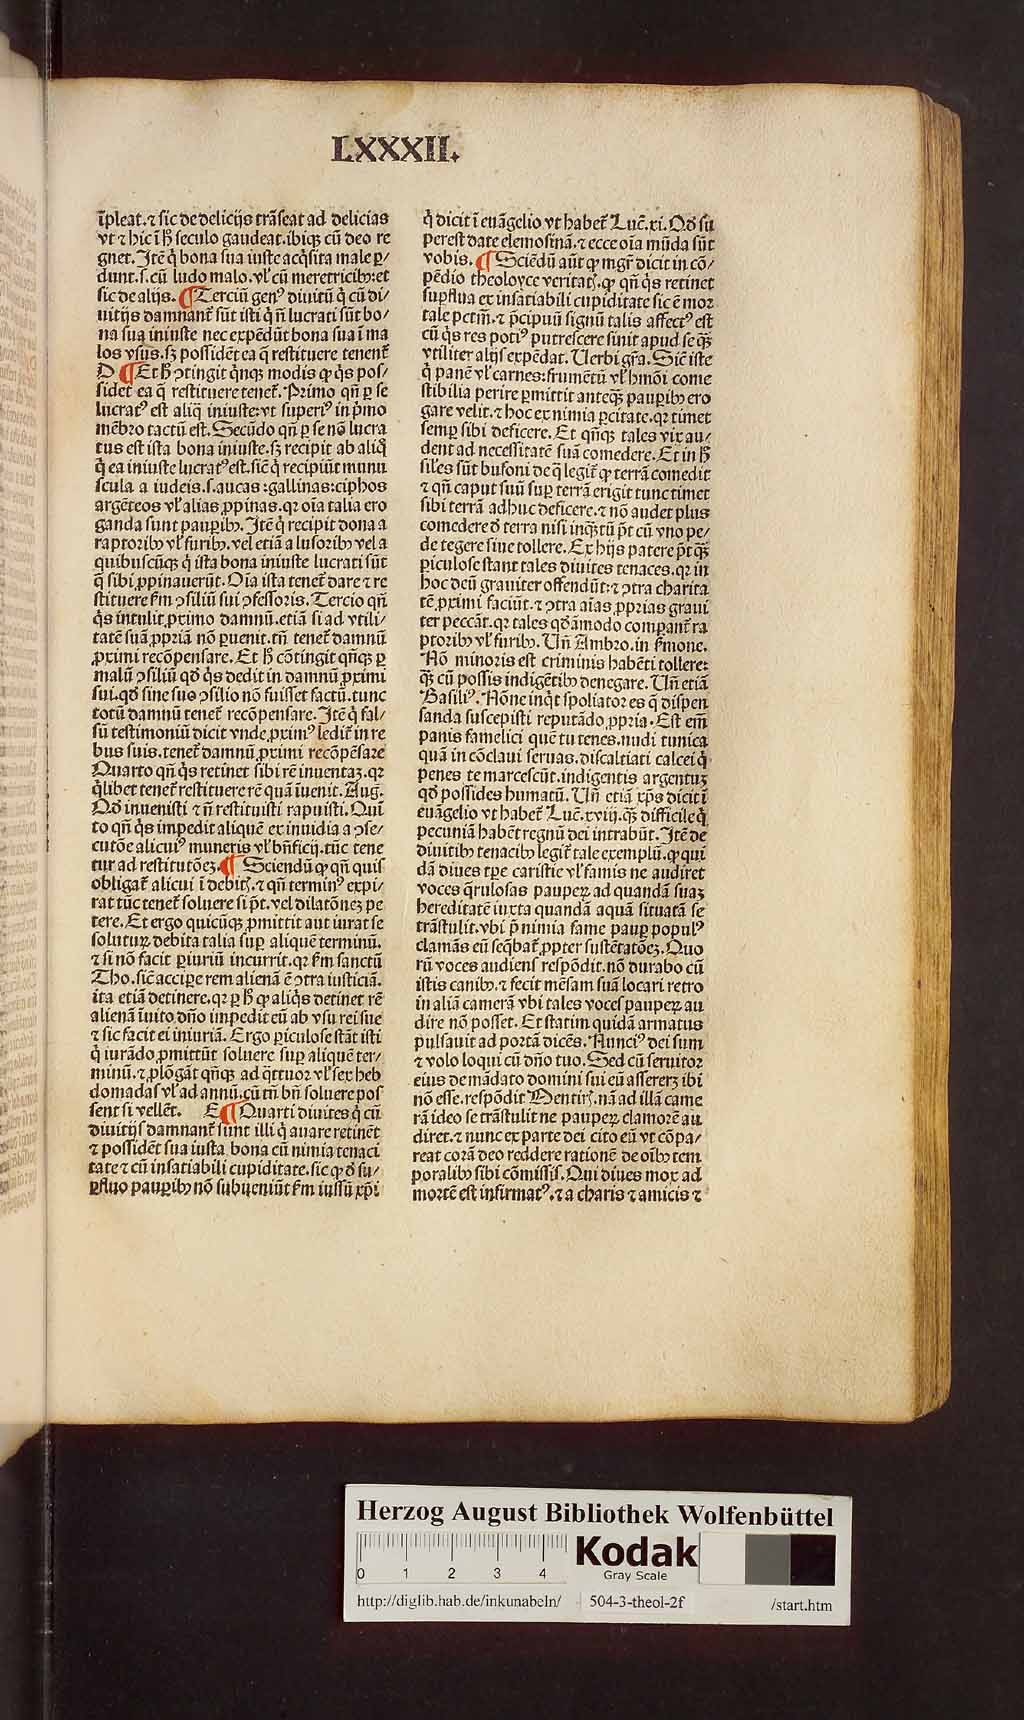 LXXXII.
īpleat.⁊ sic de delicijs trāseat ad delicias
vt ⁊ hic ī hͦ seculo gaudeat.ibiqꝫ cū deo re
gnet.Itē q̇ bona sua iuste acq̇sita male ꝑ/
dunt.s.cū ludo malo.vl̓ cū meretricibꝫ:et
sic de alijs. ¶ Terciū genꝰ diuitū q̇ cū di/
uitijs damnant᷑ sūt isti q̇ nō lucrati sūt bo/
na sua iniuste nec expēdūt bona sua ī ma
los vsus.sꝫ possidēt ea q̄ restituere tenent᷑
D ¶ Et hͦ ↄtingit q̇nqꝫ modis ꝙ q̇s pos/
sidet ea q̄ restituere tenet᷑. Primo qn̄ ꝑ se
lucratꝰ est aliq̇ iniuste:vt superiꝰ in p̄mo
mēbro tactū est.Secūdo qn̄ ꝑ se nō lucra
tus est ista bona iniuste.sꝫ recipit ab aliq̇
q̇ ea iniuste lucratꝰ est.sic̄ q̇ recipiūt munu
scula a iudeis.s.aucas:gallinas:ciphos
argēteos vl̓ alias ꝓpinas.qꝛ oīa talia ero
ganda sunt pauꝑibꝫ.Itē q̇ recipit dona a
raptoribꝫ vl̓ furibꝫ.vel etiā a lusoribꝫ vel a
quibuscūqꝫ q̇ ista bona iniuste lucrati sūt
q̄ sibi ꝓpinauerūt.Oīa ista tenet᷑ dare ⁊ re
stituere ẜm ↄsiliū sui ↄfessoris.Tercio qn̄
q̇s intulit ꝓximo damnū.etiā si ad vtili/
tatē suā ꝓpriā nō ꝑuenit.tn̄ tenet᷑ damnū
ꝓximi recōpensare. Et hͦ cōtingit qn̄qꝫ ꝑ
malū ↄsiliū qd̓ q̇s dedit in damnū ꝓximi
sui.qd̓ sine suo ↄsilio nō fuisset factū.tunc
totū damnū tenet᷑ recōpensare.Itē q̇ fal/
sū testimoniū dicit vnde ꝓximꝰ ledit᷑ in re
bus suis.tenet᷑ damnū ꝓximi recōpēsare
Quarto qn̄ q̇s retinet sibi rē inuentaꝫ.qꝛ
q̇libet tenet᷑ restituere rē quā īuenit.Aug.
Qd̓ inuenisti ⁊ nō restituisti rapuisti.Quī
to qn̄ q̇s impedit aliquē ex inuidia a ↄse/
cutōe alicuiꝰ muneris vl̓ bn̄ficij.tūc tene
tur ad restitutōeꝫ. ¶ Sciendū ꝙ qn̄ quis
obligat᷑ alicui ī debitꝭ.⁊ qn̄ terminꝰ expi/
rat tūc tenet᷑ soluere si p̄t.vel dilatōneꝫ pe
tere.Et ergo quicūqꝫ ꝓmittit aut iurat se
soluturꝫ debita talia suꝑ aliquē terminū.
⁊ si nō facit ꝑiuriū incurrit.qꝛ ẜm sanctū
Tho.sic̄ acciꝑe rem alienā ē ↄtra iusticiā.
ita etiā detinere.qꝛ ꝑ hͦ ꝙ aliq̇s detinet rē
alienā īuito dn̄o impedit eū ab vsu rei sue
⁊ sic facit ei iniuriā. Ergo ꝑiculose stāt isti
q̇ iurādo ꝓmittūt soluere suꝑ aliquē ter/
minū.⁊ ꝓlōgāt qn̄qꝫ ad q̄ttuor vl̓ sex heb
domadas vl̓ ad annū.cū tn̄ bn̄ soluere pos
sent si vellēt. E ¶ Quarti diuites q̇ cū
diuitijs damnant᷑ sunt illi q̇ auare retinēt
⁊ possidēt sua iusta bona cū nimia tenaci
tate ⁊ cū insatiabili cupiditate.sic ꝙ d̓ su/
ꝑfluo pauꝑibꝫ nō subueniūt ẜm iussū xp̄i
q̇ dicit ī euāgelio vt habet᷑ Luc̄.xi.Qd̓ su
perest date elemosinā.⁊ ecce oīa mūda sūt
vobis. ¶ Sciēdū aūt ꝙ mgr̄ dicit in cō/
pēdio theoloyce veritatꝭ.ꝙ qn̄ q̇s retinet
suꝑflua ex insatiabili cupiditate sic ē mor
tale pctm̄.⁊ p̄cipuū signū talis affectꝰ est
cū q̇s res potiꝰ putrescere sinit apud se qꝫ̄
vtiliter alijs expēdat. Uerbi gr̄a. Sic̄ iste
q̇ panē vl̓ carnes:frumētū vl̓ hmōi come
stibilia perire ꝑmittit anteqꝫ̄ pauꝑibꝫ ero
gare velit.⁊ hoc ex nimia ꝑcitate.qꝛ timet
semꝑ sibi deficere. Et qn̄qꝫ tales vix au/
dent ad necessitatē suā comedere. Et in hͦ
siles sūt bufoni de q̄ legit᷑ ꝙ terrā comedit
⁊ qn̄ caput suū suꝑ terrā erigit tunc timet
sibi terrā adhuc deficere.⁊ nō audet plus
comedere d̓ terra nisi inqꝫ̄tū p̄t cū vno pe/
de tegere siue tollere. Ex hijs patere p̄t qꝫ̄
ꝑiculose stant tales diuites tenaces.qꝛ in
hoc deū grauiter offendūt:⁊ ↄtra charita
tē ꝓximi faciūt.⁊ ↄtra aīas ꝓprias graui
ter peccāt.qꝛ tales qd̓āmodo comꝑant᷑ ra
ptoribꝫ vl̓ furibꝫ. Un̄ Ambro.in ẜmone.
Nō minoris est criminis habēti tollere:
qꝫ̄ cū possis indigētibꝫ denegare. Un̄ etiā
Basiliꝰ.Nōne inq̇t spoliator es q̇ dispen
sanda suscepisti reputādo ꝓpria. Est em̄
panis famelici quē tu tenes.nudi tunica
quā in cōclaui seruas.discaltiati calcei q̇
penes te marcescūt.indigentis argentuꝫ
qd̓ possides humatū. Un̄ etiā xp̄s dicit ī
euāgelio vt habet᷑ Luc̄.xviij.qꝫ̄ difficile q̇
pecuniā habēt regnū dei intrabūt.Itē de
diuitibꝫ tenacibꝫ legit᷑ tale exemplū.ꝙ qui
dā diues tꝑe caristie vl̓ famis ne audiret
voces q̄rulosas pauperꝫ ad quandā suaꝫ
hereditatē iuxta quandā aquā situatā se
trāstulit.vbi p̄ nimia fame pauꝑ populꝰ
clamās eū seq̄bat᷑ ꝓpter sustētatōeꝫ.Quo
rū voces audiens respōdit.nō durabo cū
istis canibꝫ.⁊ fecit mēsam suā locari retro
in aliā camerā vbi tales voces pauperꝫ au
dire nō posset. Et statim quidā armatus
pulsauit ad portā dicēs. Nunciꝰ dei sum
⁊ volo loqui cū dn̄o tuo. Sed cū seruitor
eius de mādato domini sui eū assererꝫ ibi
nō esse.respōdit Mentirꝭ.nā ad illā came
rā ideo se trāstulit ne pauperꝫ clamorē au
diret.⁊ nunc ex parte dei cito eū vt cōpa/
reat corā deo reddere rationē de oībꝫ tem
poralibꝫ sibi cōmissis.Qui diues mox ad
mortē est infirmatꝰ.⁊ a charis ⁊ amicis ⁊
Herzog August Bibliothek Wolfenbüttel
0 1 2 3 4
Kodak
Gray Scale
http://diglib.hab.de/inkunabeln/ 504-3-theol-2f /start.htm